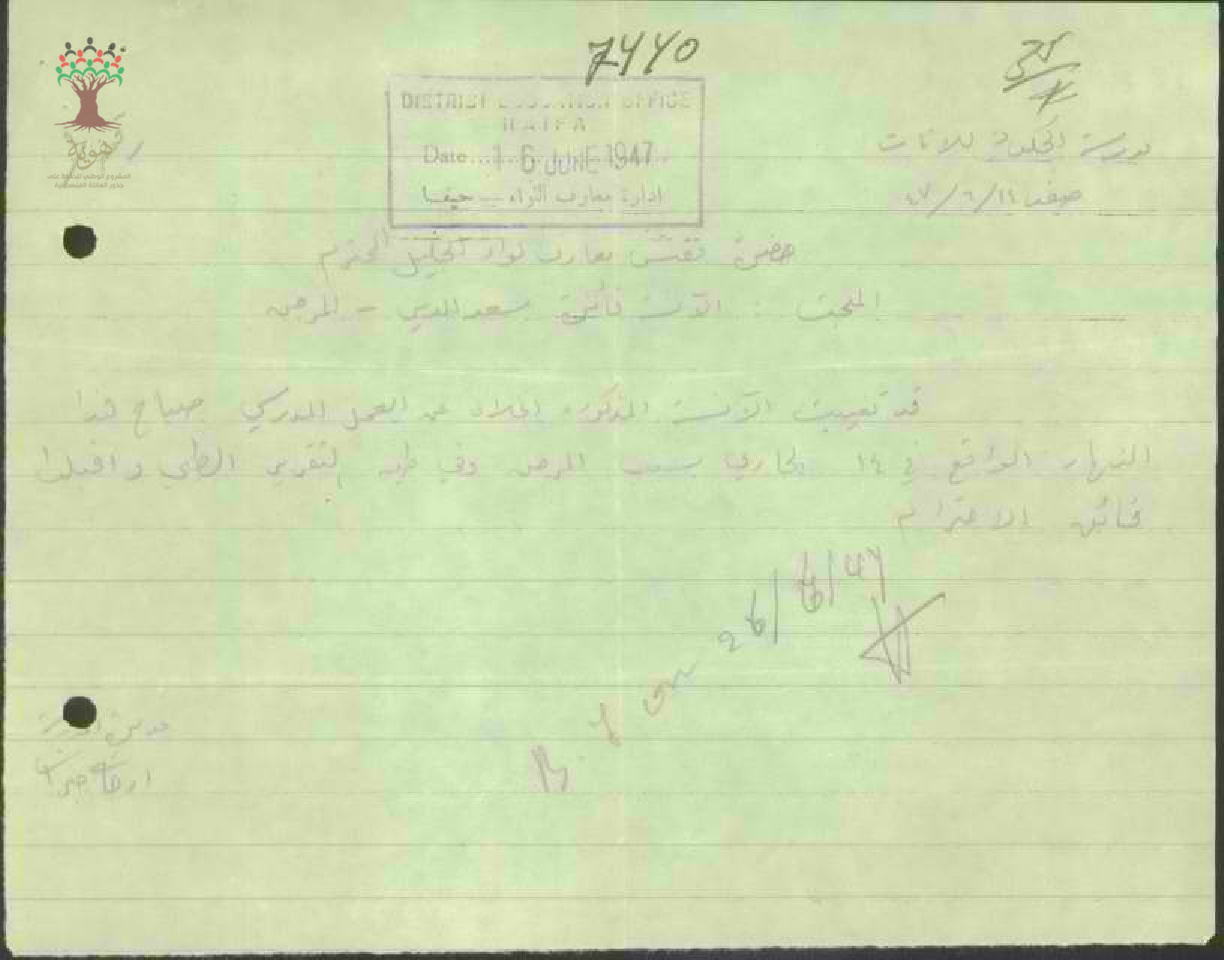 7440
DISTRICT EDUCATION OFFICE
HAIFA
Date 16 JUNE 1947
ادارة معارف اللواء - حيفا
مدرسة الحكومة للاناث
صفد ١٤/٦/٤٧
حضرة مفتش معارف لواء الجليل المحترم
المبحث : الآنسة فائزة سعد الدين - المرض
قد تغيبت الآنسة المذكورة اعلاه عن العمل المدرسي صباح هذا
النهار الواقع في ١٤ الجاري بسبب المرض وفي طيه التقرير الطبي واقبلوا
فائق الاحترام
26/6/47